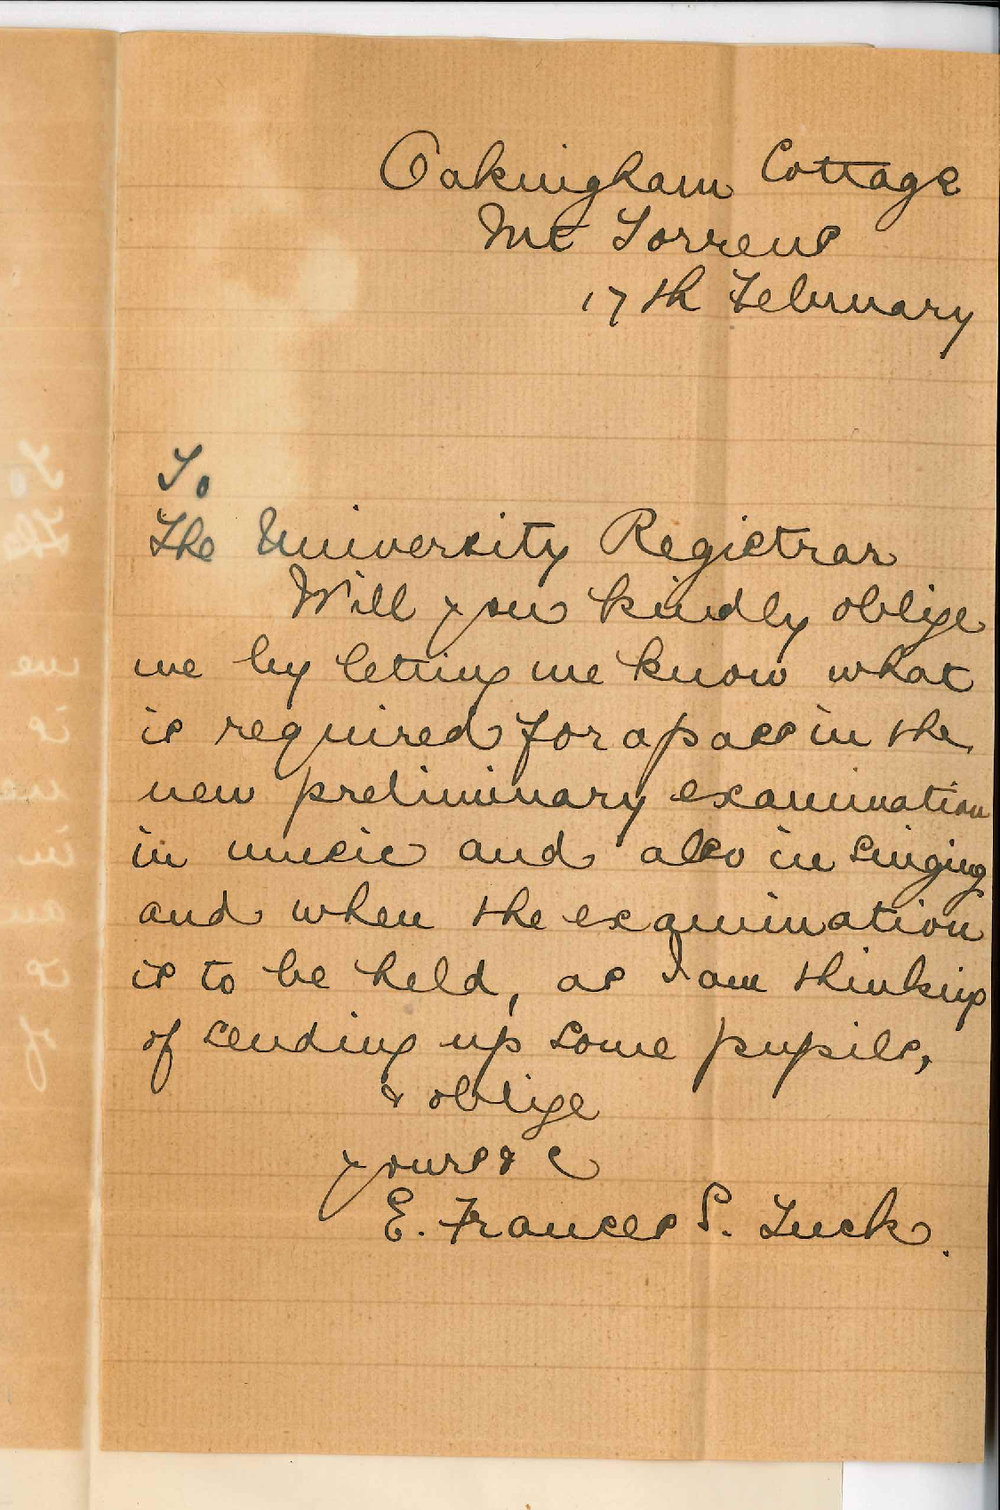 Oakingham Cottage
Mt Torrens
17th February
To
The University Registrar
Will you kindly oblige
me by letting me know what
is required for a pass in the
new preliminary examination
in music and also in singing
and when the examination
is to be held, as I am thinking
of sending up some pupils,
& oblige
yours & c
E. Frances S. Tuck.